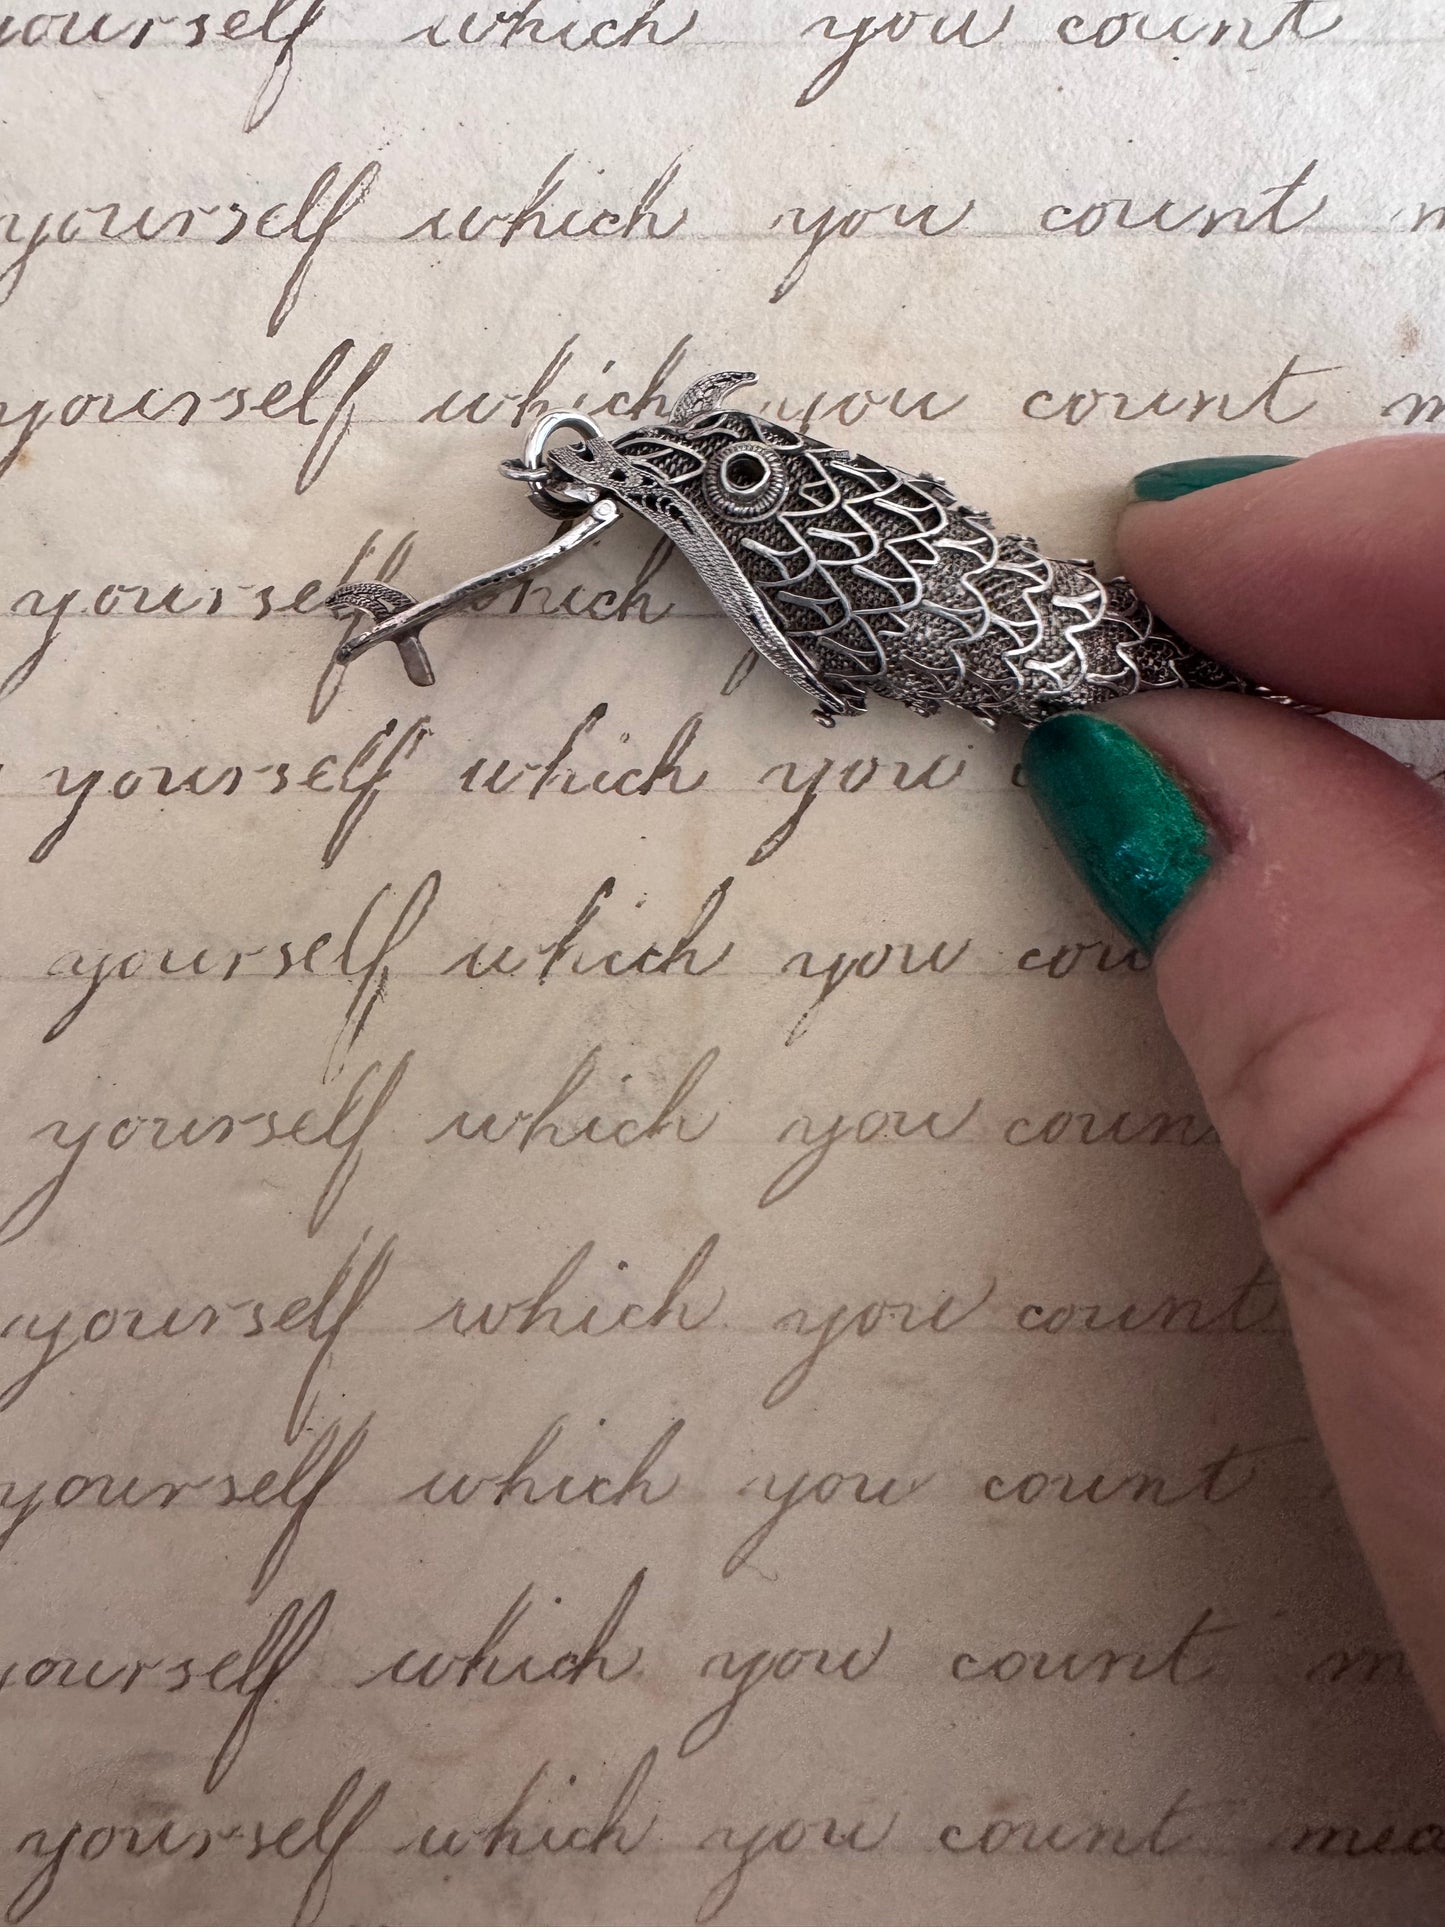 yourself which you count
yourself which you count m
yourself which you count m
yourself which
yourself which you
yourself which you cou
yourself which you coun
yourself which you count
yourself which you count
yourself which you count m
yourself which you count mea